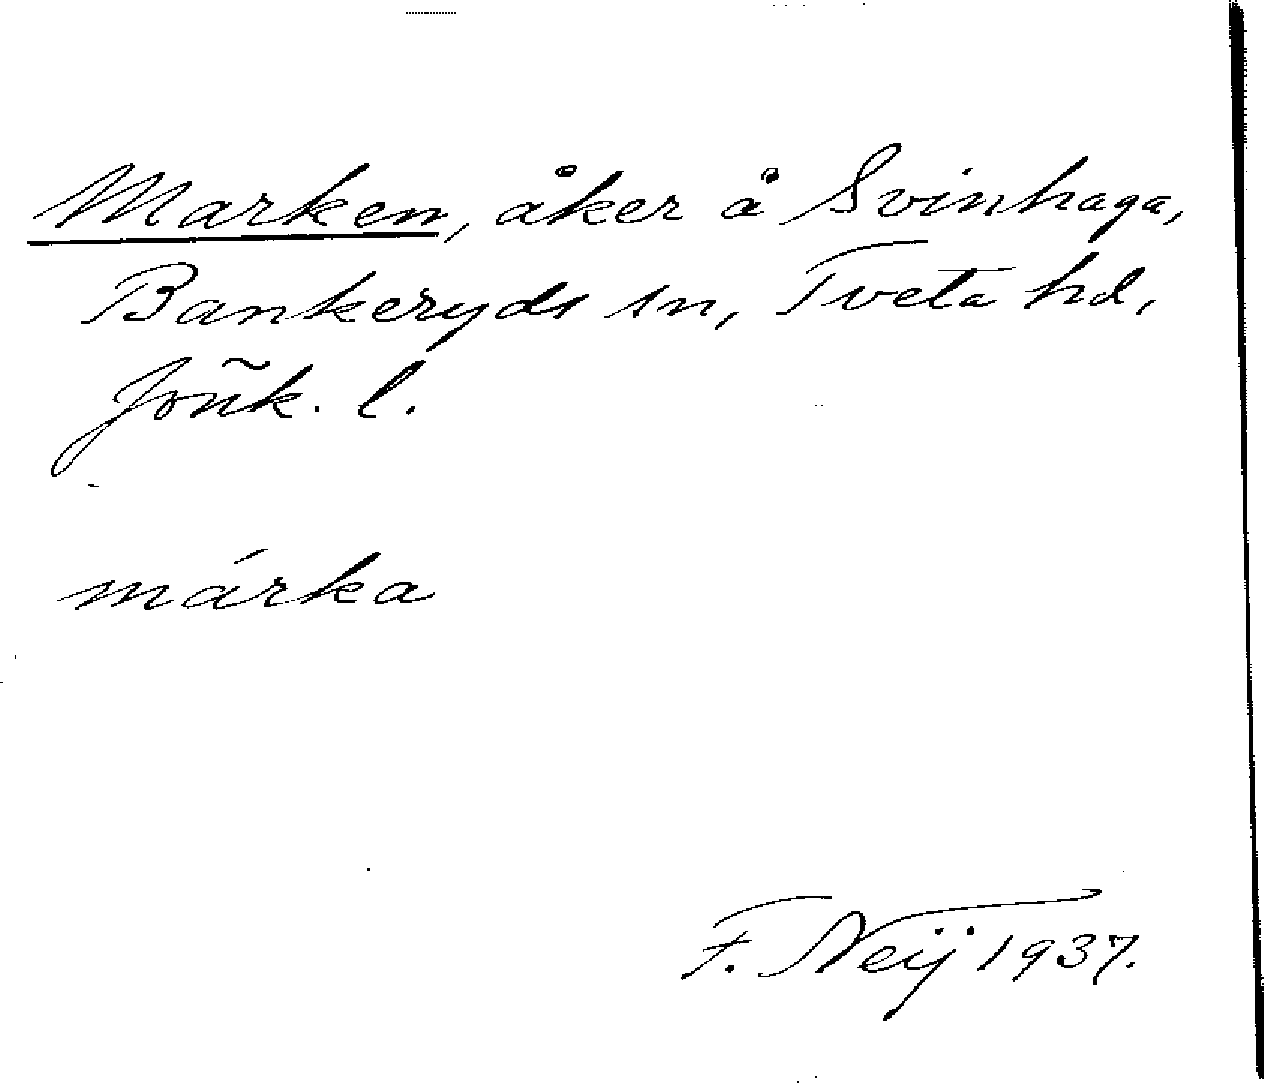 Marken, åker å Svinhaga,
Bankeryds sn, Tveta hd,
Jöñk. l.
márka
F. Neij 1937.